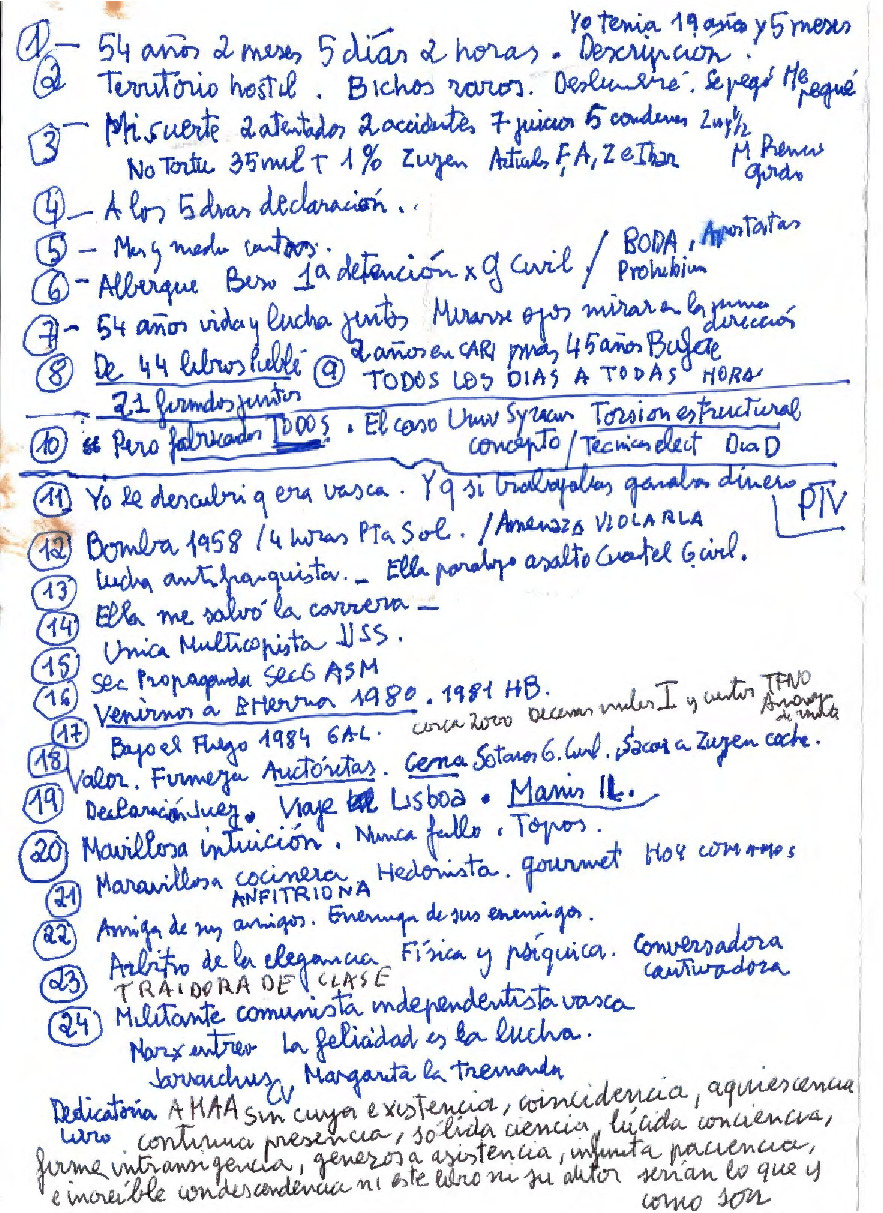 Yo tenia 19 años y 5 meses
1 - 54 años 2 meses 5 días 2 horas. Descripcion.
2 Territorio hostil. Bichos raros. Deslumbré. Se pegó Me pegué
3 - Mi suerte 2 atentados 2 accidentes 7 juicios 5 condenas
No Tortu 35 mil + 1% Zuzen Articuls E, A, Z e Ibar M Premios Gordo
4 - A los 5 dias declaración..
5 - Mes y medio
6 - Albergue Beso 1ª detención x G Civil / BODA, Apostatas
Prohibiun
7 - 54 años vida y lucha juntos Mirarse ojos mirar en la misma dirección
8 De 44 libros Publé 9 2 años en CARI y más 45 años Bufete
21 firmados juntos TODOS LOS DIAS A TODAS HORA
10 Pero fabricados TODOS. El caso Univ Syracus Torsion estructural
concepto / Tecnicas elect Dia D
11 Yo le descubri q era vasca. Y q si trabajabas ganabas dinero
PTV
12 Bomba 1958 / 4 horas Pta Sol. / Amenaza VIOLARLA
13 Lucha antifranquista. - Ella paralojo asalto Cuartel G.civil.
14 Ella me salvó la carrera -
15 Unica Multicopista IJSS.
16 Sec Propaganda SecG ASM
17 Venirnos a EHerria 1980. 1981 HB.
18 Bajo el Fuego 1984 GAL. cerca 2000 Decenas miles I y cientos TFNO Amenaza de
Valor. Firmeza Auctóritas. Cena Sotanos G. Civil. Sacar a Zuzen coche.
19 Declaración Juez. Viaje Lisboa. Manis IL.
20 Mavillosa intuición. Nunca fallo. Topos.
21 Maravillosa cocinera Hedonista. gourmet HOY COMAMOS
ANFITRIONA
22 Amiga de sus amigos. Enemiga de sus enemigos.
23 Arbitro de la elegancia Física y psíquica. Conversadora cautivadora
TRAIDORA DE CLASE
24 Militante comunista independentista vasca
Marx entrev La felicidad es la lucha.
CV Margarita la Tremenda
Dedicatoria A MAA sin cuya existencia, coincidencia, aquiescencia
Libro continua presencia, sólida ciencia, lúcida conciencia,
firme intransigencia, generosa asistencia, infinita paciencia,
e increíble condescendencia ni este libro ni su autor serían lo que y
como son